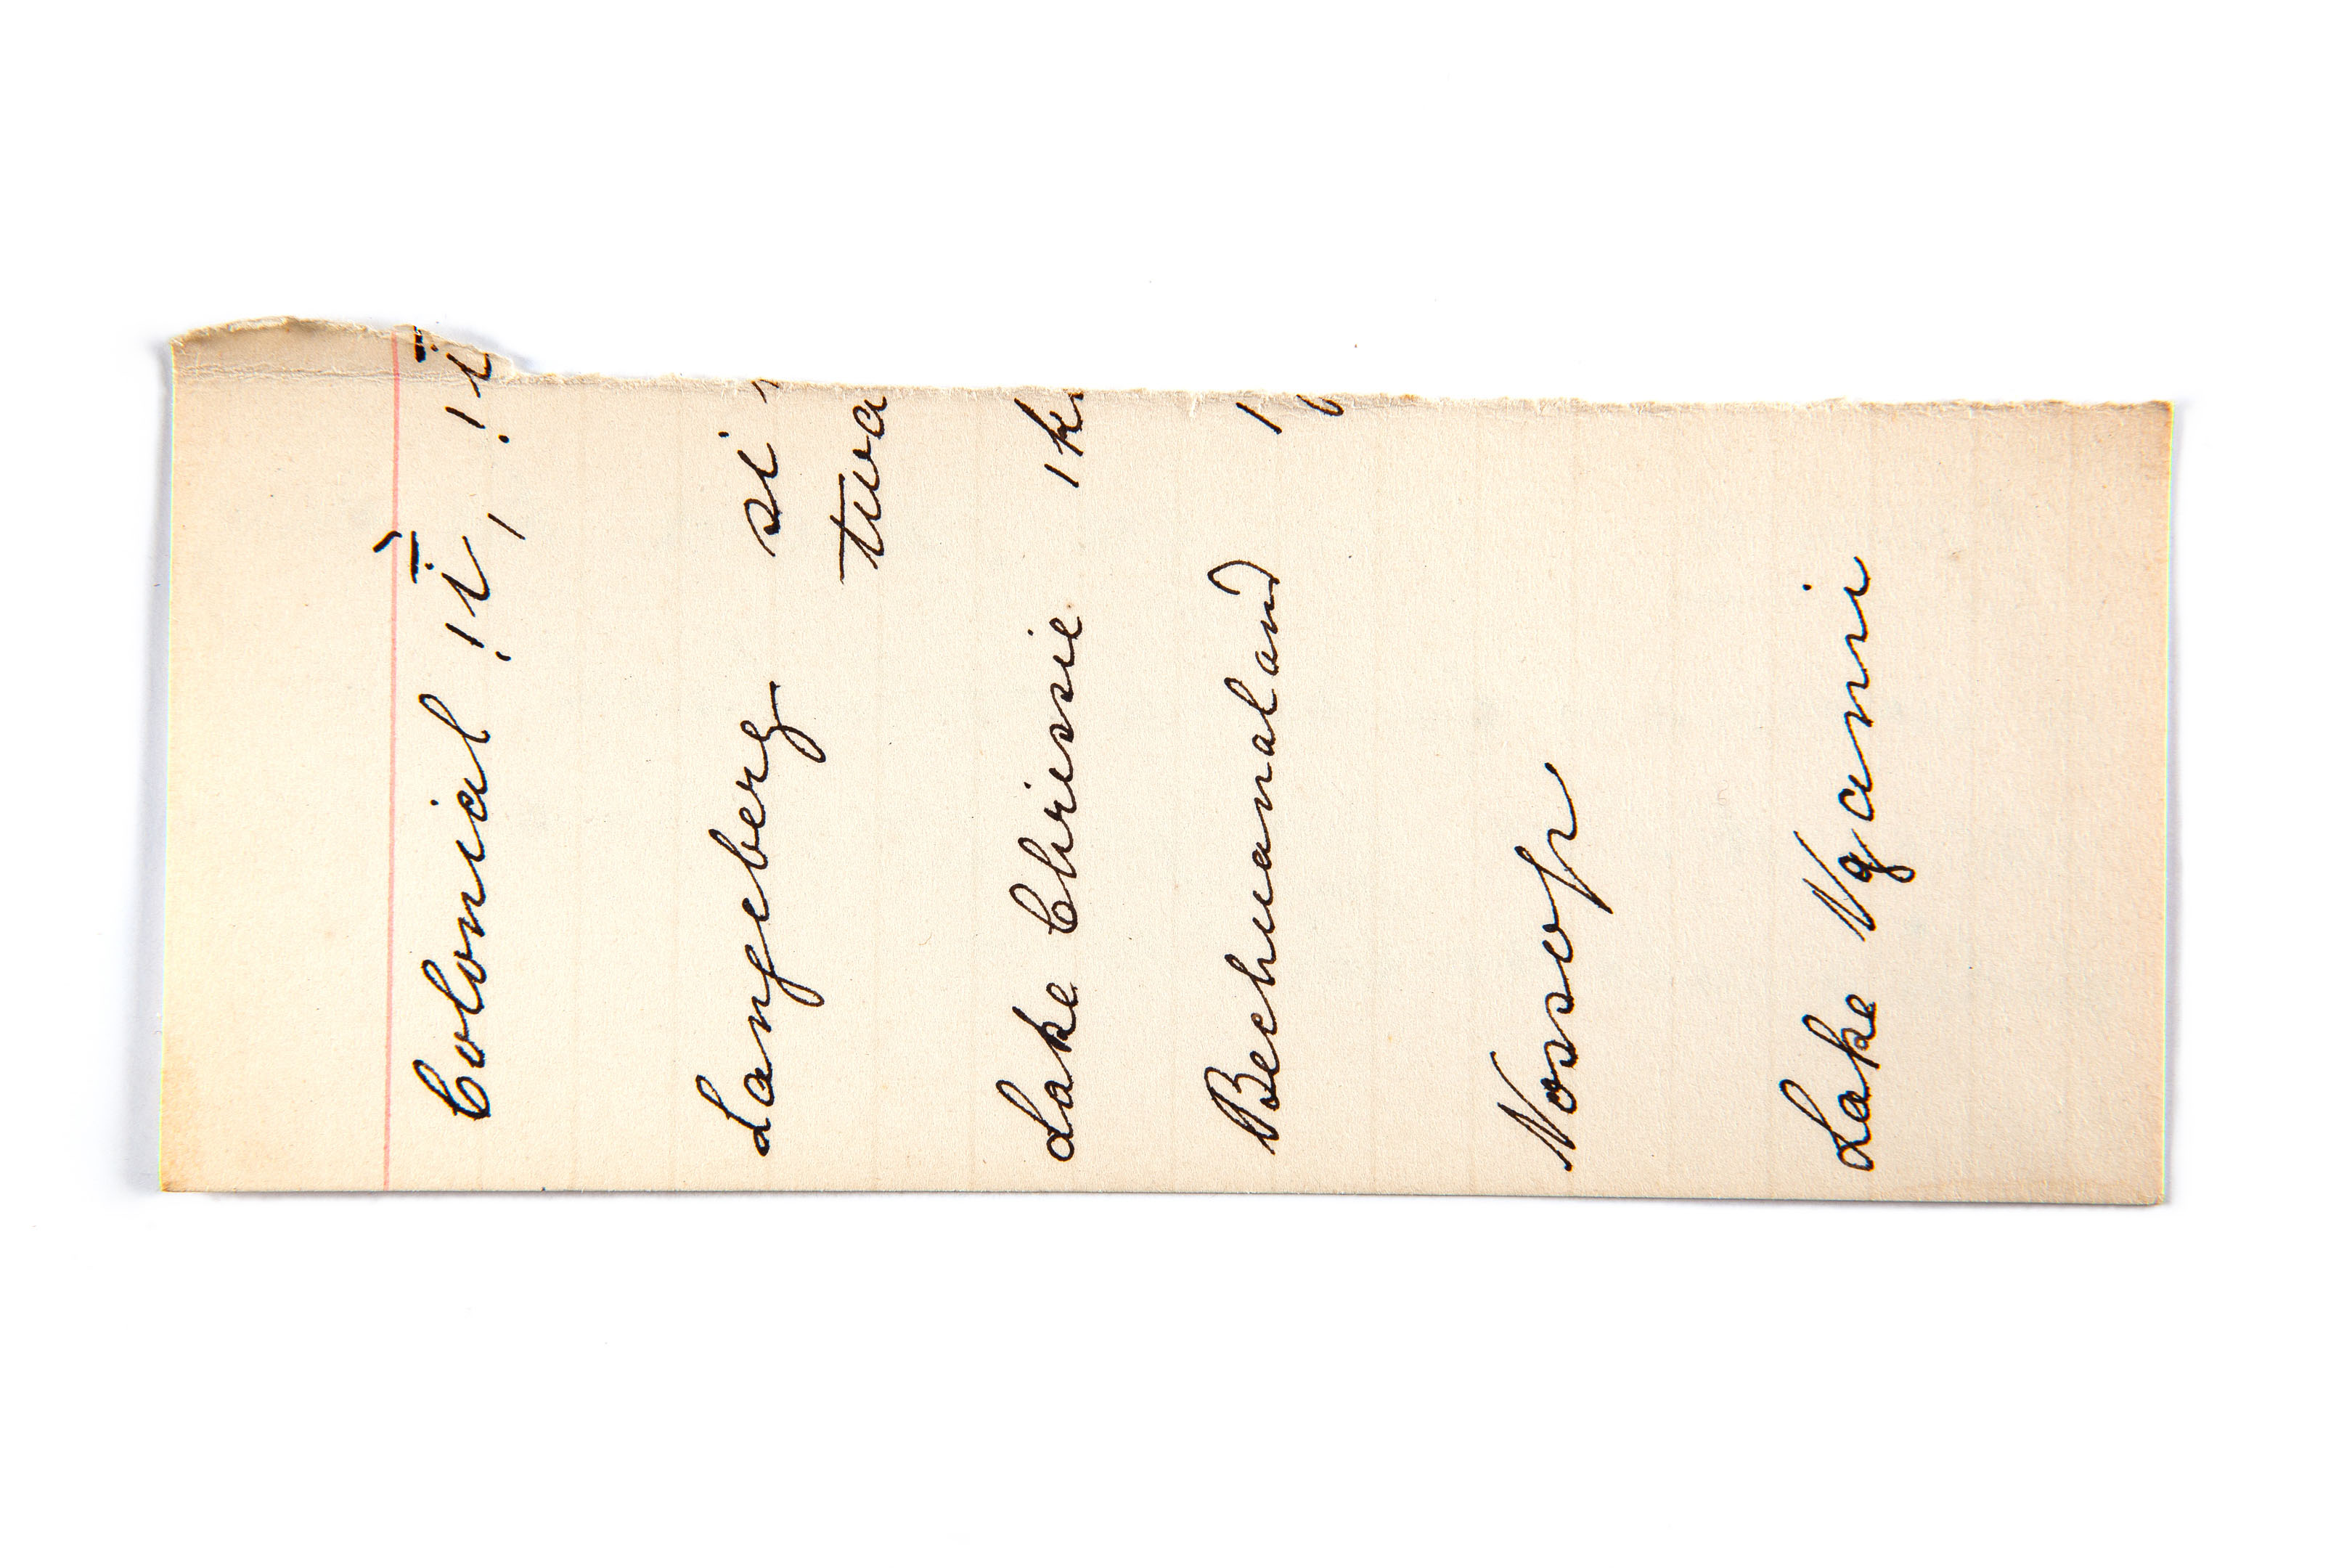 Colonial !ī́, !ī
Langeberg si
twa
Lake Chrissie |k
Bechuanaland |
Nosop
Lake Ngami